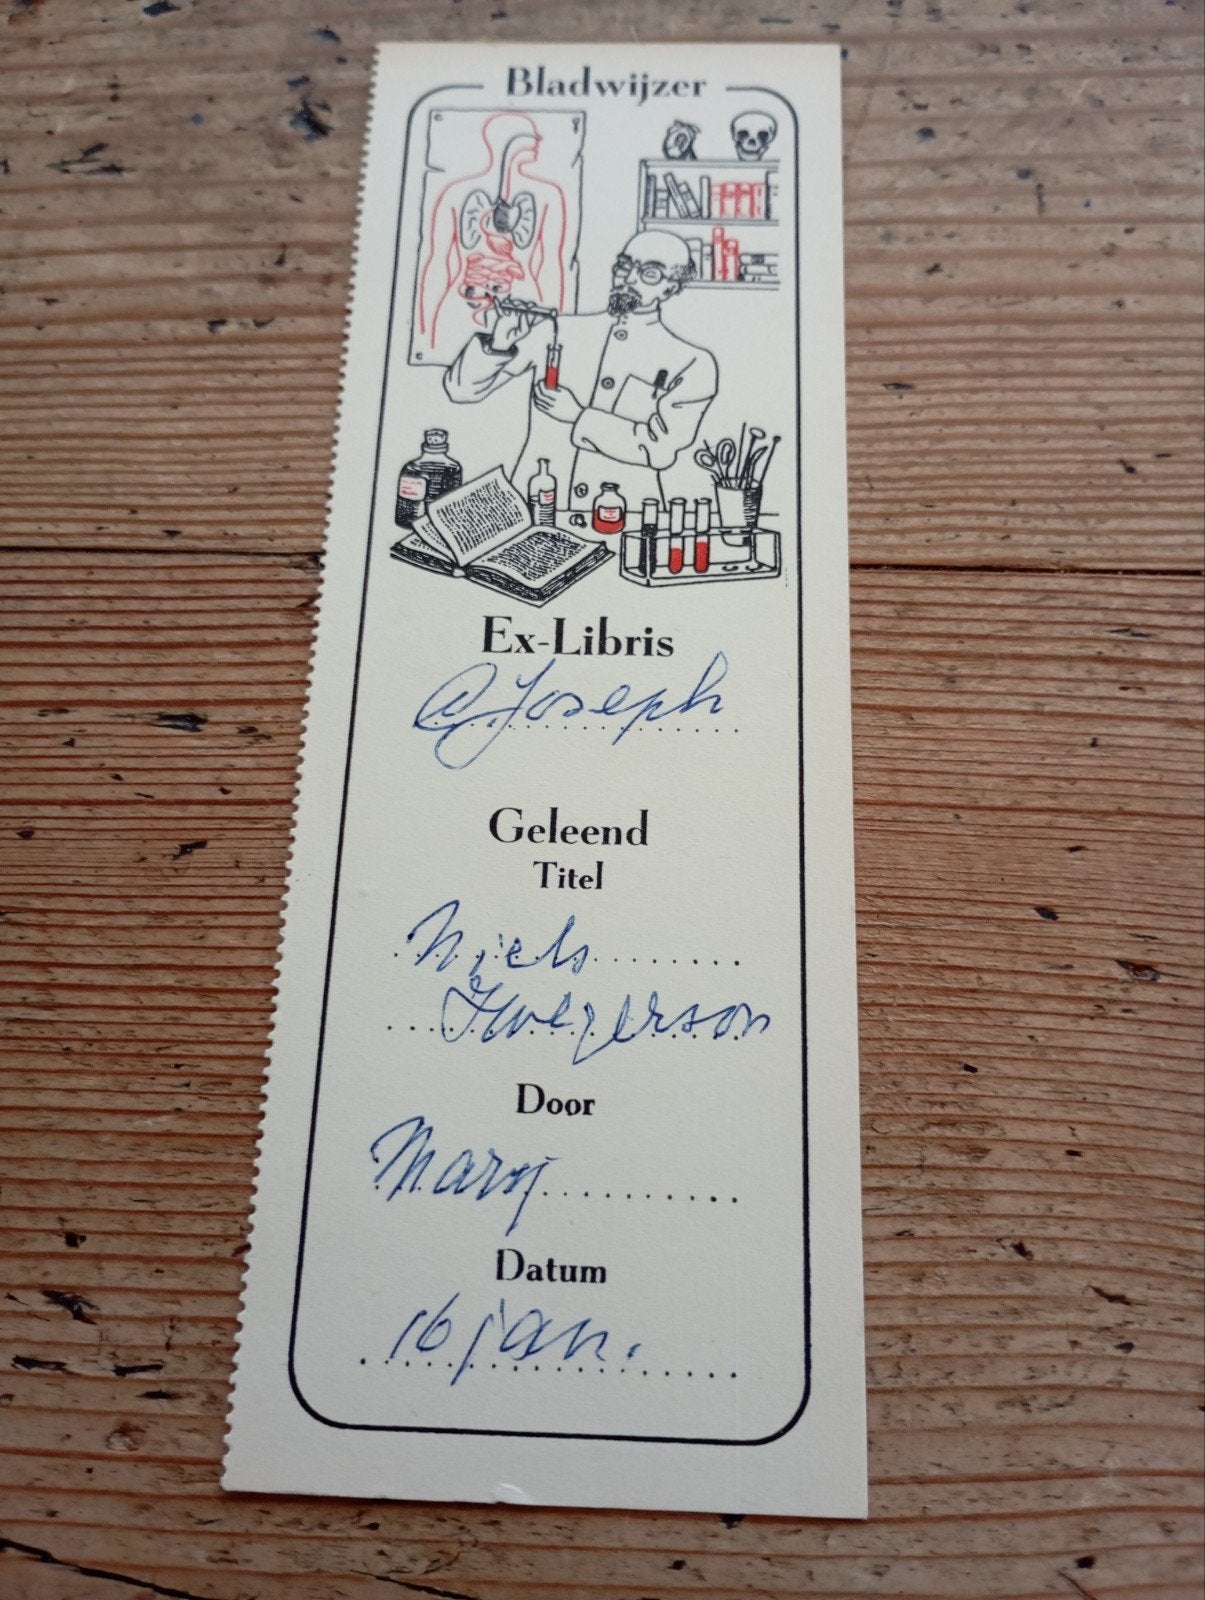 Bladwijzer
Ex-Libris
C Joseph
Geleend
Titel
Niels
Door
Datum
16 jan.